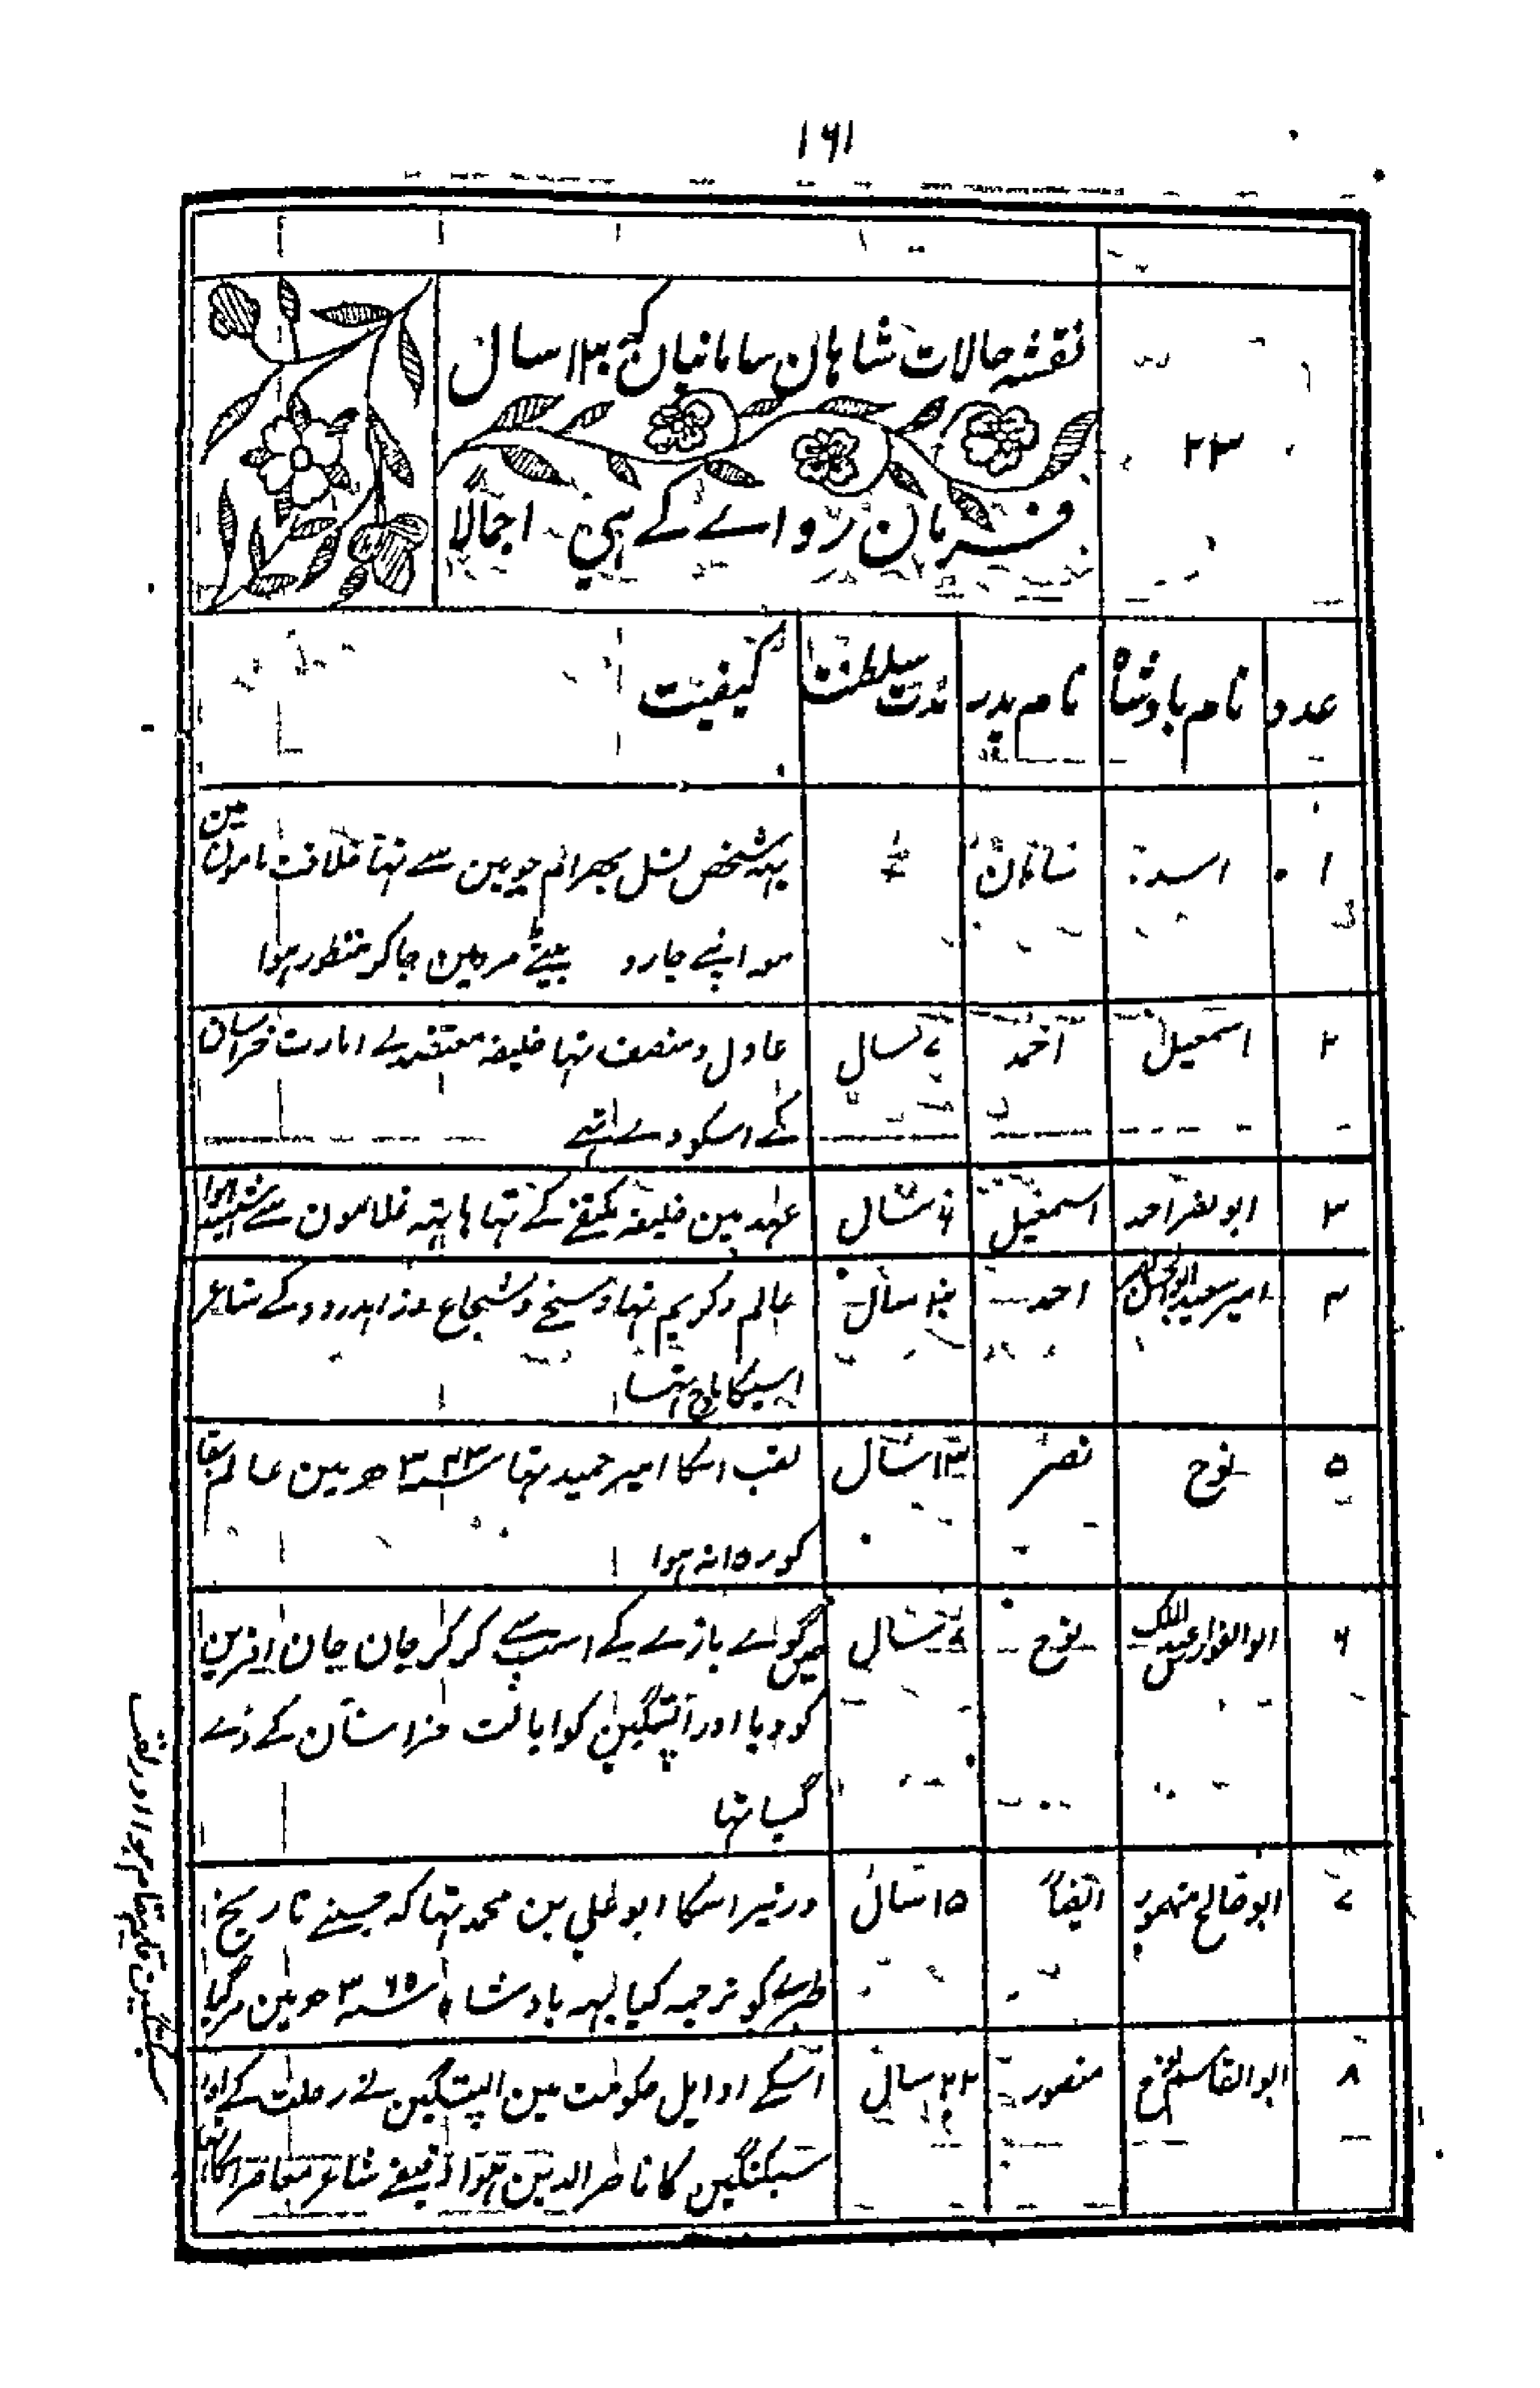 ۱۶۱
۲۳
نقشہ حالات شاہان سامانیان کہ ۱۳۰ سال
فرمان رواے کے ہین۔ اجمالاً
عدد نام بادشاہ نام پدر مدت سلطنت کیفیت
۱ اسد سامان
یہہ شخص نسل بہرام چوبین سے تہا خلافت مامون مین
معہ اپنے چارو بیٹے مرو مین جاکر منظور ہوا
۲ اسمعیل احمد ۷ سال
عادل و منصف تہا خلیفہ معتضد نے امارت خراسان
کے اسکو دے تہے
۳ ابو نصر احمد اسمعیل ۶ سال
عہد مین خلیفہ مکتفے کے تہا ہاتہہ غلامون سے شہید ہوا
۴ امیر سعید ابوالحسن نصر احمد ۳۰ سال
عالم و کریم تہا و سخے و شجاع و زاہد رودکے شاعر
اسیکا مادح تہا
۵ نوح نصر ۱۳ سال
لقب اسکا امیر حمید تہا سنہ ۳۴۳ ھ مین عالم بقا
کو روانہ ہوا
۶ ابو الفوارس عبد الملک نوح ۷ سال
گواے بازے کے اسپ سے گر کر جان جان افرین
کو دیا اور الپتگین کو ایالت خراسان کے دے
گیا تہا
۷ ابو صالح منصور ایضاً ۱۵ سال
وزیر اسکا ابو علی بن محمد تہا کہ جسنے تاریخ
طبرے کو ترجمہ کیا یہہ بادشاہ سنہ ۳۶۵ ھ مین مر گیا
۸ ابو القاسم نوح منصور ۲۲ سال
اسکے اوایل حکومت مین الپتگین نے رحلت کے اور
سبکتگین قایم مقام ہوا اور لقب
سبکتگین کا ناصر الدین ہوا دقیقے شاعر معاصر اسکا تہا